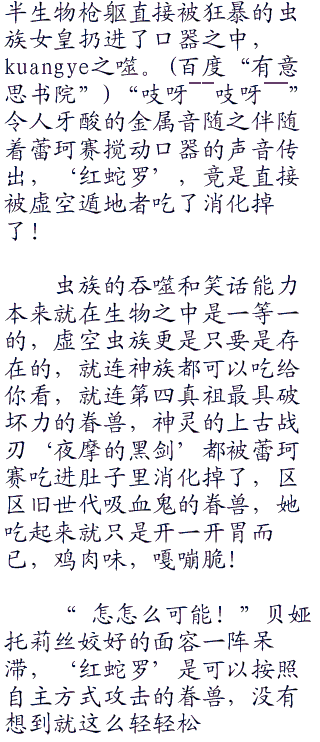 半生物枪躯直接被狂暴的虫
族女皇扔进了口器之中，
kuangye之噬。(百度“有意
思书院”)“吱呀——吱呀——”
令人牙酸的金属音随之伴随
着蕾珂赛搅动口器的声音传
出，‘红蛇罗’，竟是直接
被虚空遁地者吃了消化掉
了！
虫族的吞噬和笑话能力
本来就在生物之中是一等一
的，虚空虫族更是只要是存
在的，就连神族都可以吃给
你看，就连第四真祖最具破
坏力的眷兽，神灵的上古战
刃‘夜摩的黑剑’都被蕾珂
赛吃进肚子里消化掉了，区
区旧世代吸血鬼的眷兽，她
吃起来就只是开一开胃而
已，鸡肉味，嘎嘣脆!
“ 怎怎么可能！”贝娅
托莉丝姣好的面容一阵呆
滞，‘红蛇罗’是可以按照
自主方式攻击的眷兽，没有
想到就这么轻轻松